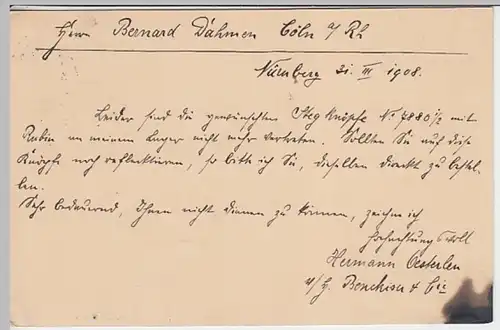 Herrn Bernard Dahmen Cöln a/Rh
Nürnberg 31. III 1908.
Leider sind die gewünschten Steg Knöpfe No 7880 1/2 mit
Rubin an meinem Lager nicht mehr vertreten. Sollten Sie auf diese
Knöpfe noch reflektieren, so bitte ich Sie, dieselben direkt zu bestel-
len.
Sehr bedauernd, Ihnen nicht dienen zu können, zeichne ich
Hochachtungsvoll
Hermann Oesterlen
Benckiser & Cie